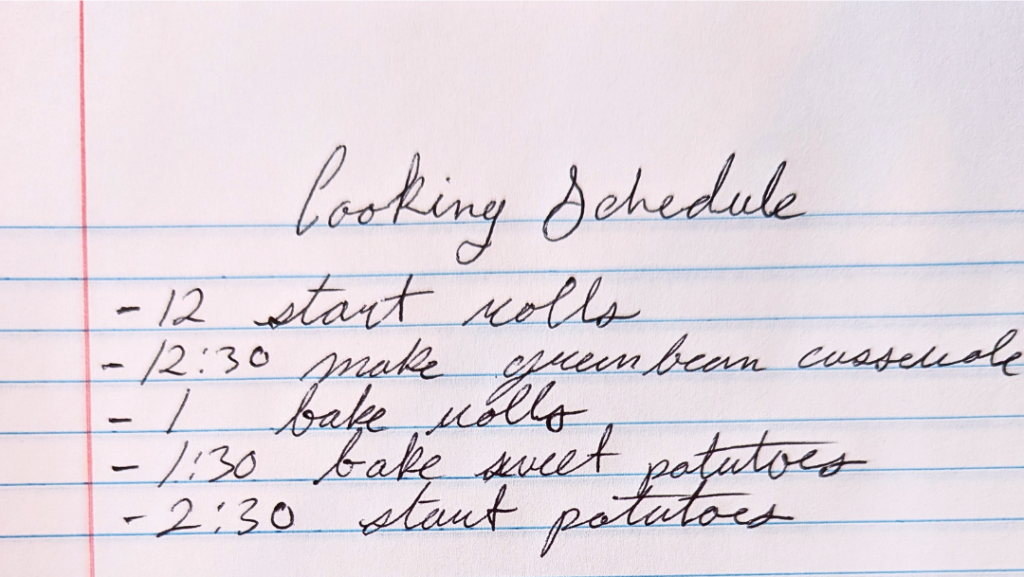 Cooking Schedule
- 12 start rolls
- 12:30 make greenbean casserole
- 1 bake rolls
- 1:30 bake sweet potatoes
- 2:30 start potatoes